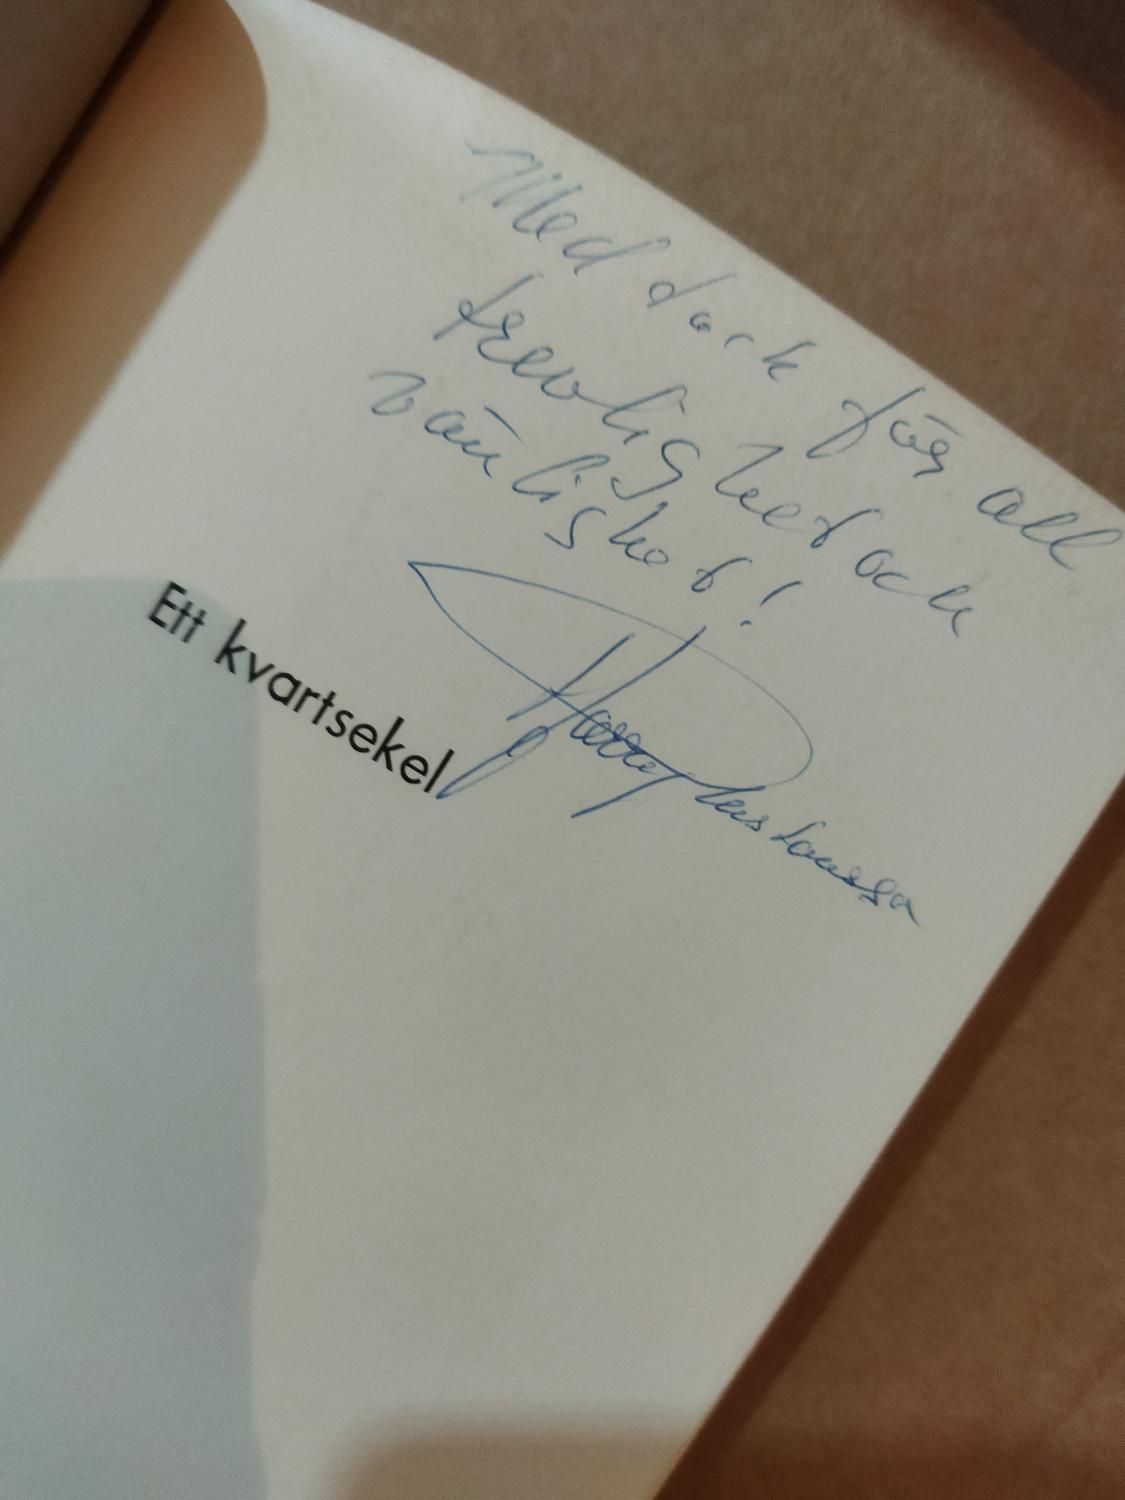 Med tack för all
trevlighet och
vänlighet!
Harry
Ett kvartsekel